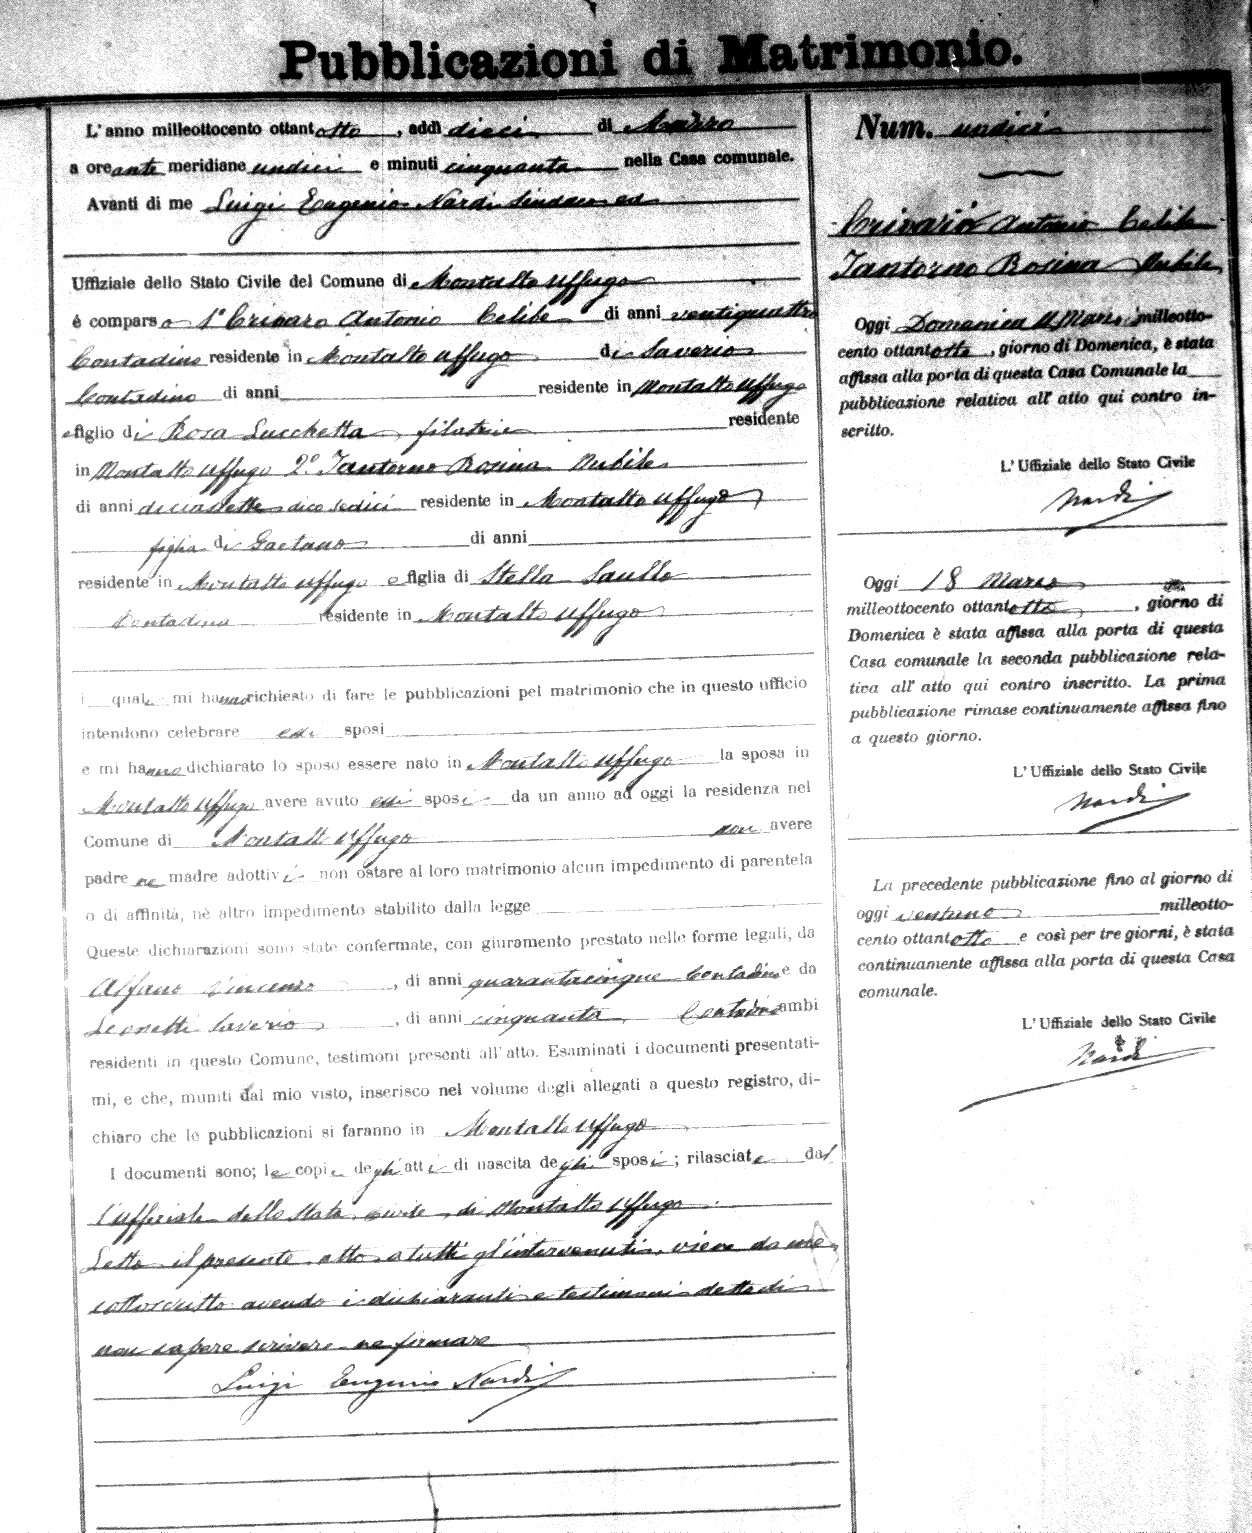 Pubblicazioni di Matrimonio.
L'anno milleottocento ottantotto, addì dieci di Marzo
a ore ante meridiane undici e minuti cinquanta nella Casa comunale.
Avanti di me Luigi Eugenio Nardi Sindaco ed
Uffiziale dello Stato Civile del Comune di Montalto Uffugo
è comparso 1° Crivaro Antonio Celibe di anni ventiquattro
Contadino residente in Montalto Uffugo di Saverio
Contadino di anni residente in Montalto Uffugo
e figlio di Rosa Lucchetta, filatrice residente
in Montalto Uffugo 2° Iantorno Rosina Nubile
di anni diciassette dico sedici residente in Montalto Uffugo
figlia di Gaetano di anni
residente in Montalto Uffugo e figlia di Stella Saullo
Contadina residente in Montalto Uffugo
i quali mi hanno richiesto di fare le pubblicazioni pel matrimonio che in questo ufficio
intendono celebrare essi sposi
e mi hanno dichiarato lo sposo essere nato in Montalto Uffugo la sposa in
Montalto Uffugo avere avuto essi sposi da un anno ad oggi la residenza nel
Comune di Montalto Uffugo non avere
padre ne madre adottivi non ostare al loro matrimonio alcun impedimento di parentela
o di affinità, nè altro impedimento stabilito dalla legge
Queste dichiarazioni sono state confermate, con giuramento prestato nelle forme legali, da
Alfano Vincenzo, di anni quarantacinque Contadino e da
Leonetti Saverio, di anni cinquanta, Contadino ambi
residenti in questo Comune, testimoni presenti all'atto. Esaminati i documenti presentati-
mi, e che, muniti dal mio visto, inserisco nel volume degli allegati a questo registro, di-
chiaro che le pubblicazioni si faranno in Montalto Uffugo
I documenti sono; le copie degli atti di nascita degli sposi; rilasciate dal
l'ufficiale dello Stato civile di Montalto Uffugo.
Letto il presente atto a tutti gl'intervenuti, viene da me
sottoscritto avendo i dichiaranti e testimoni detto di
non sapere scrivere ne firmare
Luigi Eugenio Nardi
Num. undici
Crivaro Antonio Celibe
Iantorno Rosina Nubile
Oggi Domenica 11 Marzo milleotto-
cento ottantotto, giorno di Domenica, è stata
affissa alla porta di questa Casa Comunale la
pubblicazione relativa all'atto qui contro in-
scritto.
L'Uffiziale dello Stato Civile
Nardi
Oggi 18 Marzo
milleottocento ottantotto, giorno di
Domenica è stata affissa alla porta di questa
Casa comunale la seconda pubblicazione rela-
tiva all'atto qui contro inscritto. La prima
pubblicazione rimase continuamente affissa fino
a questo giorno.
L'Uffiziale dello Stato Civile
Nardi
La precedente pubblicazione fino al giorno di
oggi ventuno milleotto-
cento ottantotto e così per tre giorni, è stata
continuamente affissa alla porta di questa Casa
comunale.
L'Uffiziale dello Stato Civile
Nardi